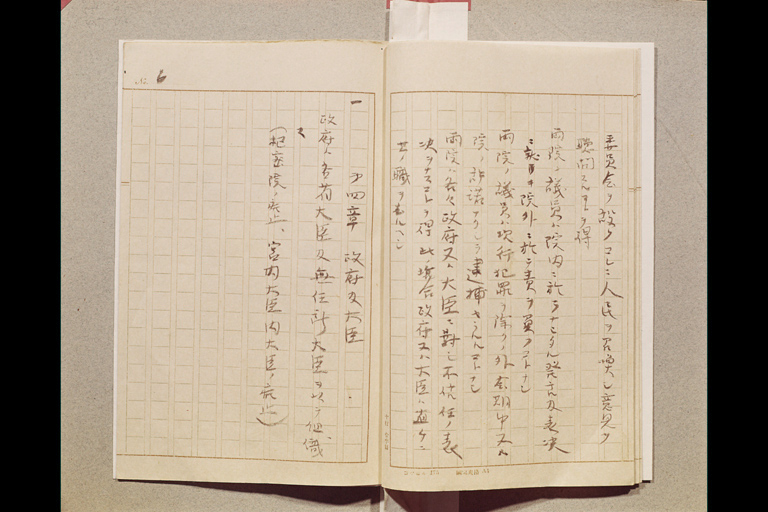 委員会ヲ設ケコレニ人民ヲ召喚シ意見ヲ
聴聞スルコトヲ得
両院ノ議員ハ院内ニ於テナシタル発言及表決
ニ就キ院外ニ於テ責ヲ負フコトナシ
両院ノ議員ハ現行犯罪ヲ除クノ外会期中又ハ
院ノ許諾ナクシテ逮捕セラルルコトナシ
両院ハ各々政府又ハ大臣ニ対シ不信任ノ表
決ヲナスコトヲ得此場合政府又ハ大臣ハ直ケニ
其ノ職ヲ去ルヘシ
No. 6
第四章 政府及大臣
一
政府ハ各省大臣及無任所大臣ヲ以テ組織
ス
(枢密院ノ廃止、宮内大臣内大臣ノ廃止)